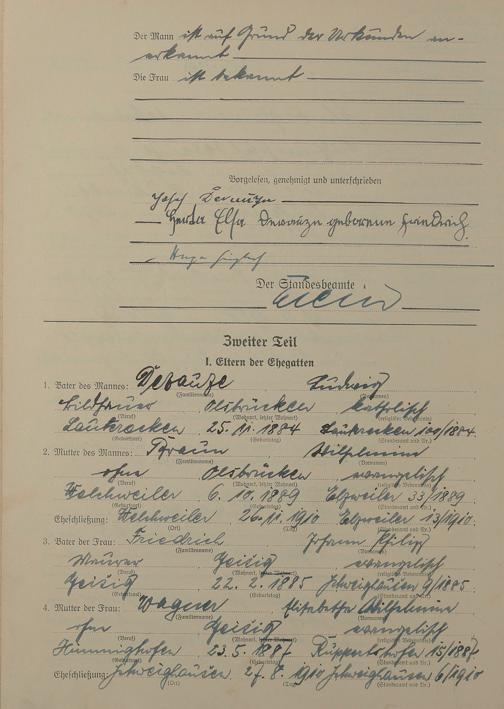 Der Mann ist auf Grund der Urkunden an-
erkannt
Die Frau ist bekannt
Vorgelesen, genehmigt und unterschrieben
Josef
Herta Elsa geborene Friedrich
Der Standesbeamte
Zweiter Teil
I. Eltern der Ehegatten
1. Bater des Mannes: Ludwig
(Familienname) (Vornamen)
Olsbrücken katholisch
(Beruf) (Wohnort, letzter Wohnort)
25. 11. 1884 100/1884
(Geburtsort) (Geburtstag) (Standesamt und Nr.)
2. Mutter des Mannes: Braun Wilhelmine
(Familienname) (Vornamen)
ohne Olsbrücken evangelisch
(Beruf) (Wohnort, letzter Wohnort)
Welchweiler 6. 10. 1889 Elzweiler 33/1889
(Geburtsort) (Geburtstag) (Standesamt und Nr.)
Eheschließung: Welchweiler 26. 11. 1910 Elzweiler 13/1910
(Ort) (Tag) (Standesamt und Nr.)
3. Bater der Frau: Friedrich Johann Philipp
(Familienname) (Vornamen)
Maurer Geisig evangelisch
(Beruf) (Wohnort, letzter Wohnort)
Geisig 22. 2. 1885 Schweighausen 9/1885
(Geburtsort) (Geburtstag) (Standesamt und Nr.)
4. Mutter der Frau: Wagner Elisabethe Wilhelmine
(Familienname) (Vornamen)
ohne Geisig evangelisch
(Beruf) (Wohnort, letzter Wohnort)
Himmighofen 23. 5. 1887 Ruppertshofen 15/1887
(Geburtsort) (Geburtstag) (Standesamt und Nr.)
Eheschließung: Schweighausen 27. 8. 1910 Schweighausen 6/1910
(Ort) (Tag) (Standesamt und Nr.)